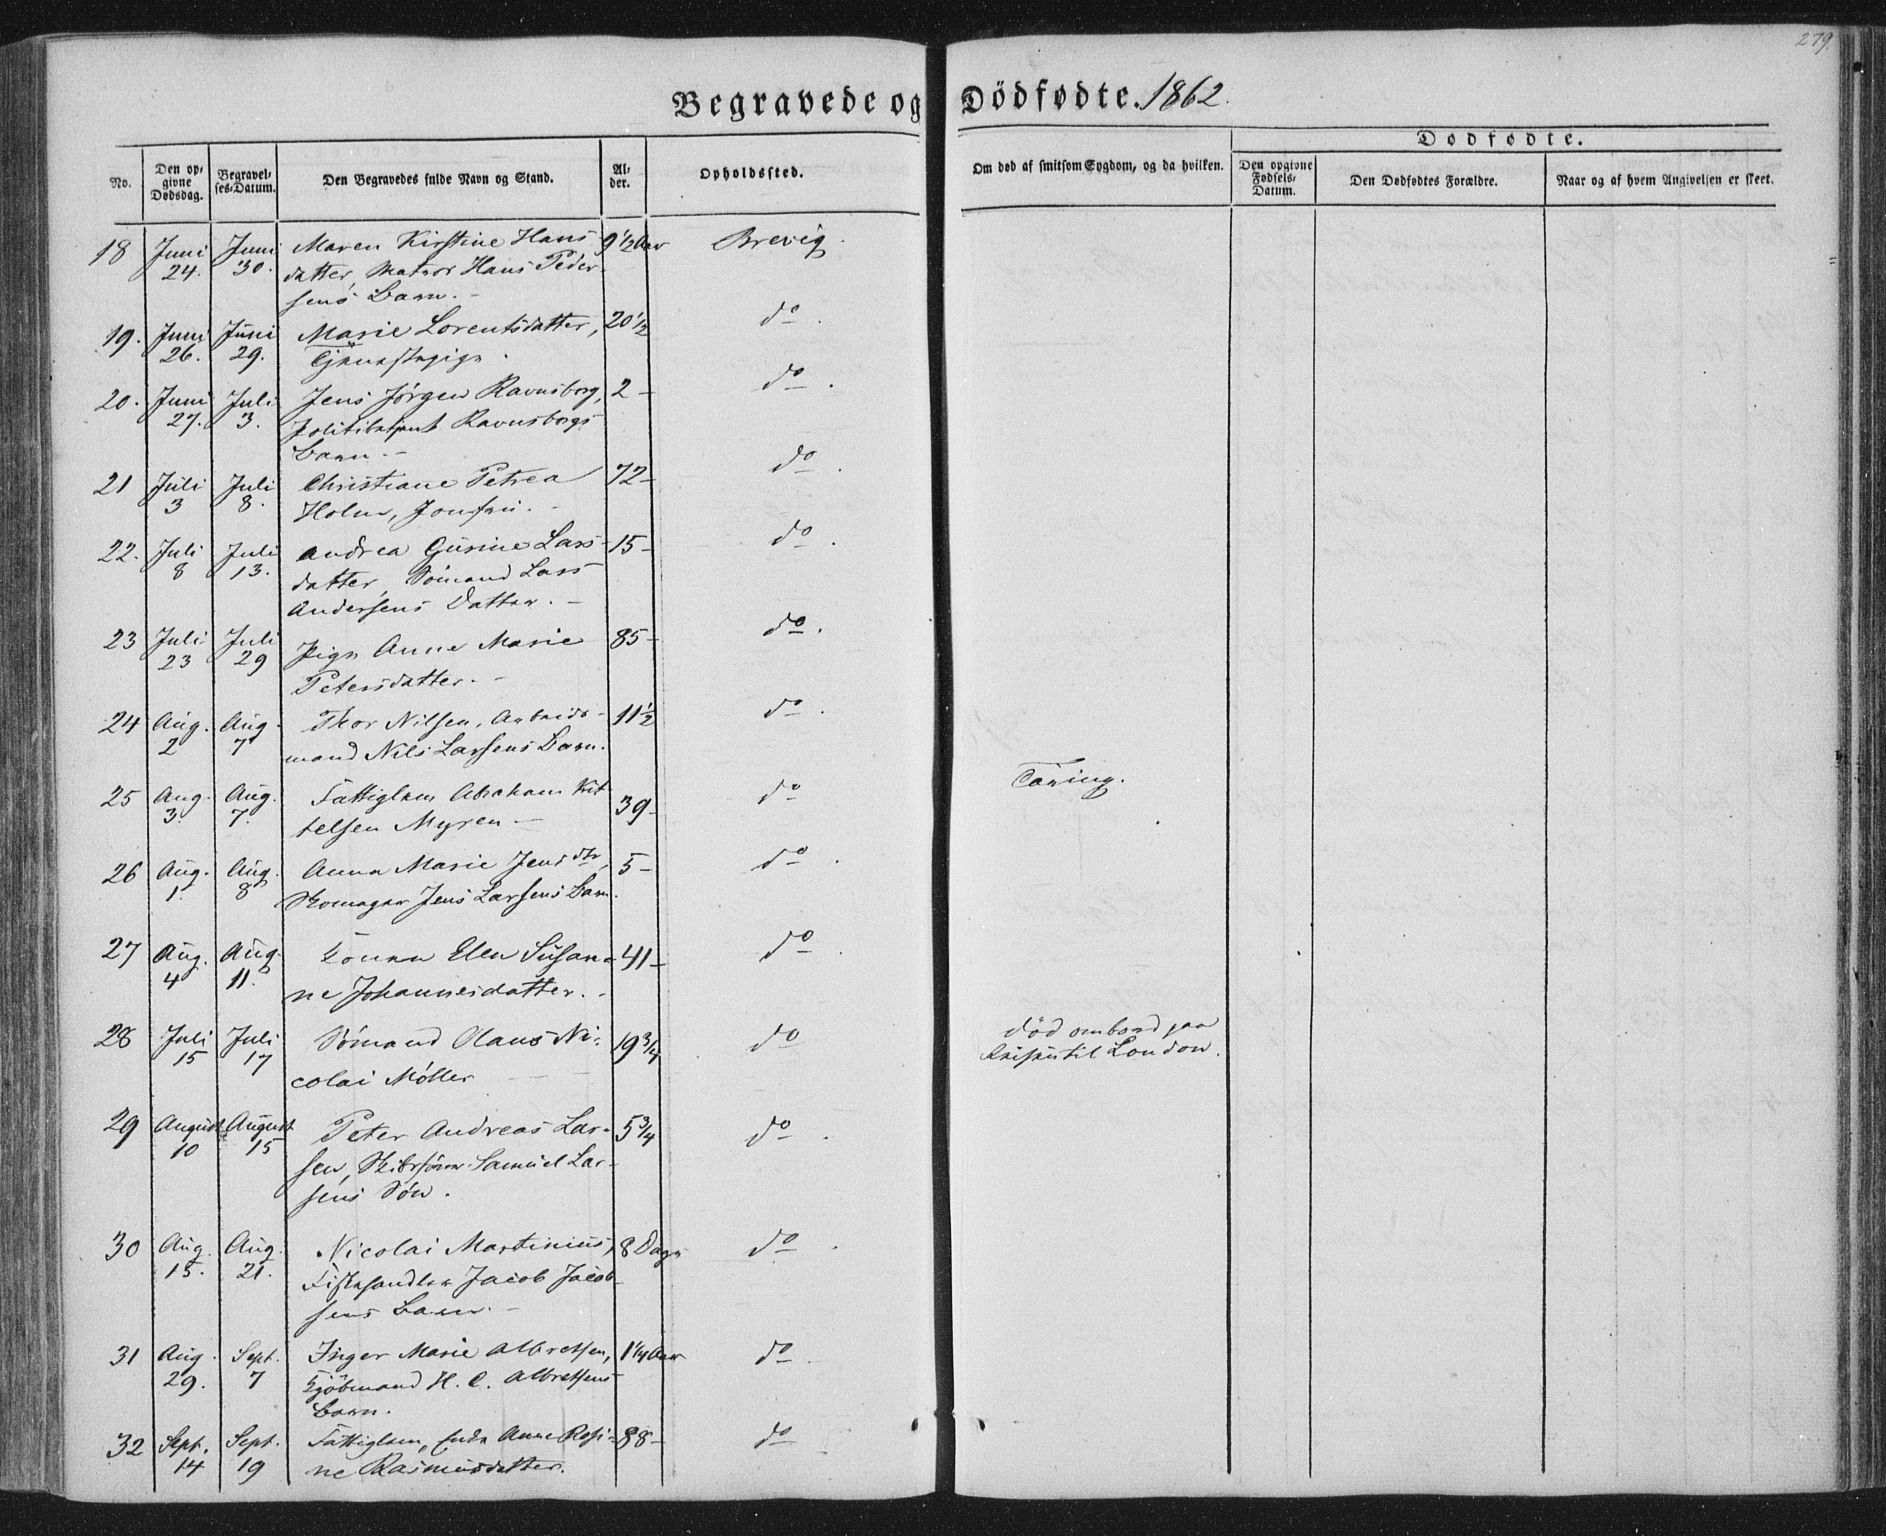 279.
Begravede og Dödfødte. 1862.
No.
Den opgivne Dødsdag.
Begravelses-Datum.
Den Begravedes fulde Navn og Stand.
Alder.
Opholdssted.
Om død af smitsom Sygdom, og da hvilken.
Dødfødte.
Den opgivne Fødsels-Datum.
Den Dødfødtes Forældre.
Naar og af hvem Angivelsen er skeet.
18 Juni 24. Juni 30. Maren Kirstine Hans- 9 1/2 Aar Brevig.
datter, Matros Hans Peder-
sens Barn. -
19. Juni 26. Juni 29. Marie Lorentsdatter, 20 1/2 do.
Tjenestepige.
20. Juni 27. Juli 3. Jens Jørgen Ravnsborg, 2 - do.
Politibetjent Ravnsborgs
Barn. -
21 Juli 3 Juli 8. Christiane Petrea 72 - do.
Holm, Jomfru. -
22. Juli 8 Juli 13. Andrea Gurine Lars- 15 - do.
datter, Sömand Lars
Andersens Datter. -
23 Juli 23 Juli 29 Pige Anne Marie 85 - do.
Petersdatter. -
24 Aug. 2 Aug. 7 Thor Nilsen, Arbeids- 11 1/2 do.
mand Nils Larsens Barn.
25 Aug. 3. Aug. 7. Fattiglem Abraham Kit- 39 - do Tæring.
telsen Myren -
26 Aug. 1. Aug. 8 Anna Marie Jensdtr, 5 - do.
Skomager Jens Larsens Barn.
27 Aug. 4 Aug. 11. Konen Elen Susan- 41 - do.
ne Johannesdatter. -
28 Juli 15 Juli 17 Sömand Olaus Ni- 19 3/4 do død ombord paa
colai Möller Reisen til London.
29 August 10 August 15 Peter Andreas Lar- 5 3/4 do.
sen, Skibsförer Samuel Lar-
sens Sön.
30 Aug. 15. Aug. 21. Nicolai Martinius, 8 Dage do.
Fiskehandler Jacob Jacob-
sens Barn. -
31 Aug. 29. Sept. 7 Inger Marie Albretsen, 1 1/4 Aar do.
Kjöbmand H. C. Albretsens
Barn.
32 Sept. 14 Sept. 19 Fattiglem, Enke Anne Rosi- 88 - do
ne Rasmusdatter.